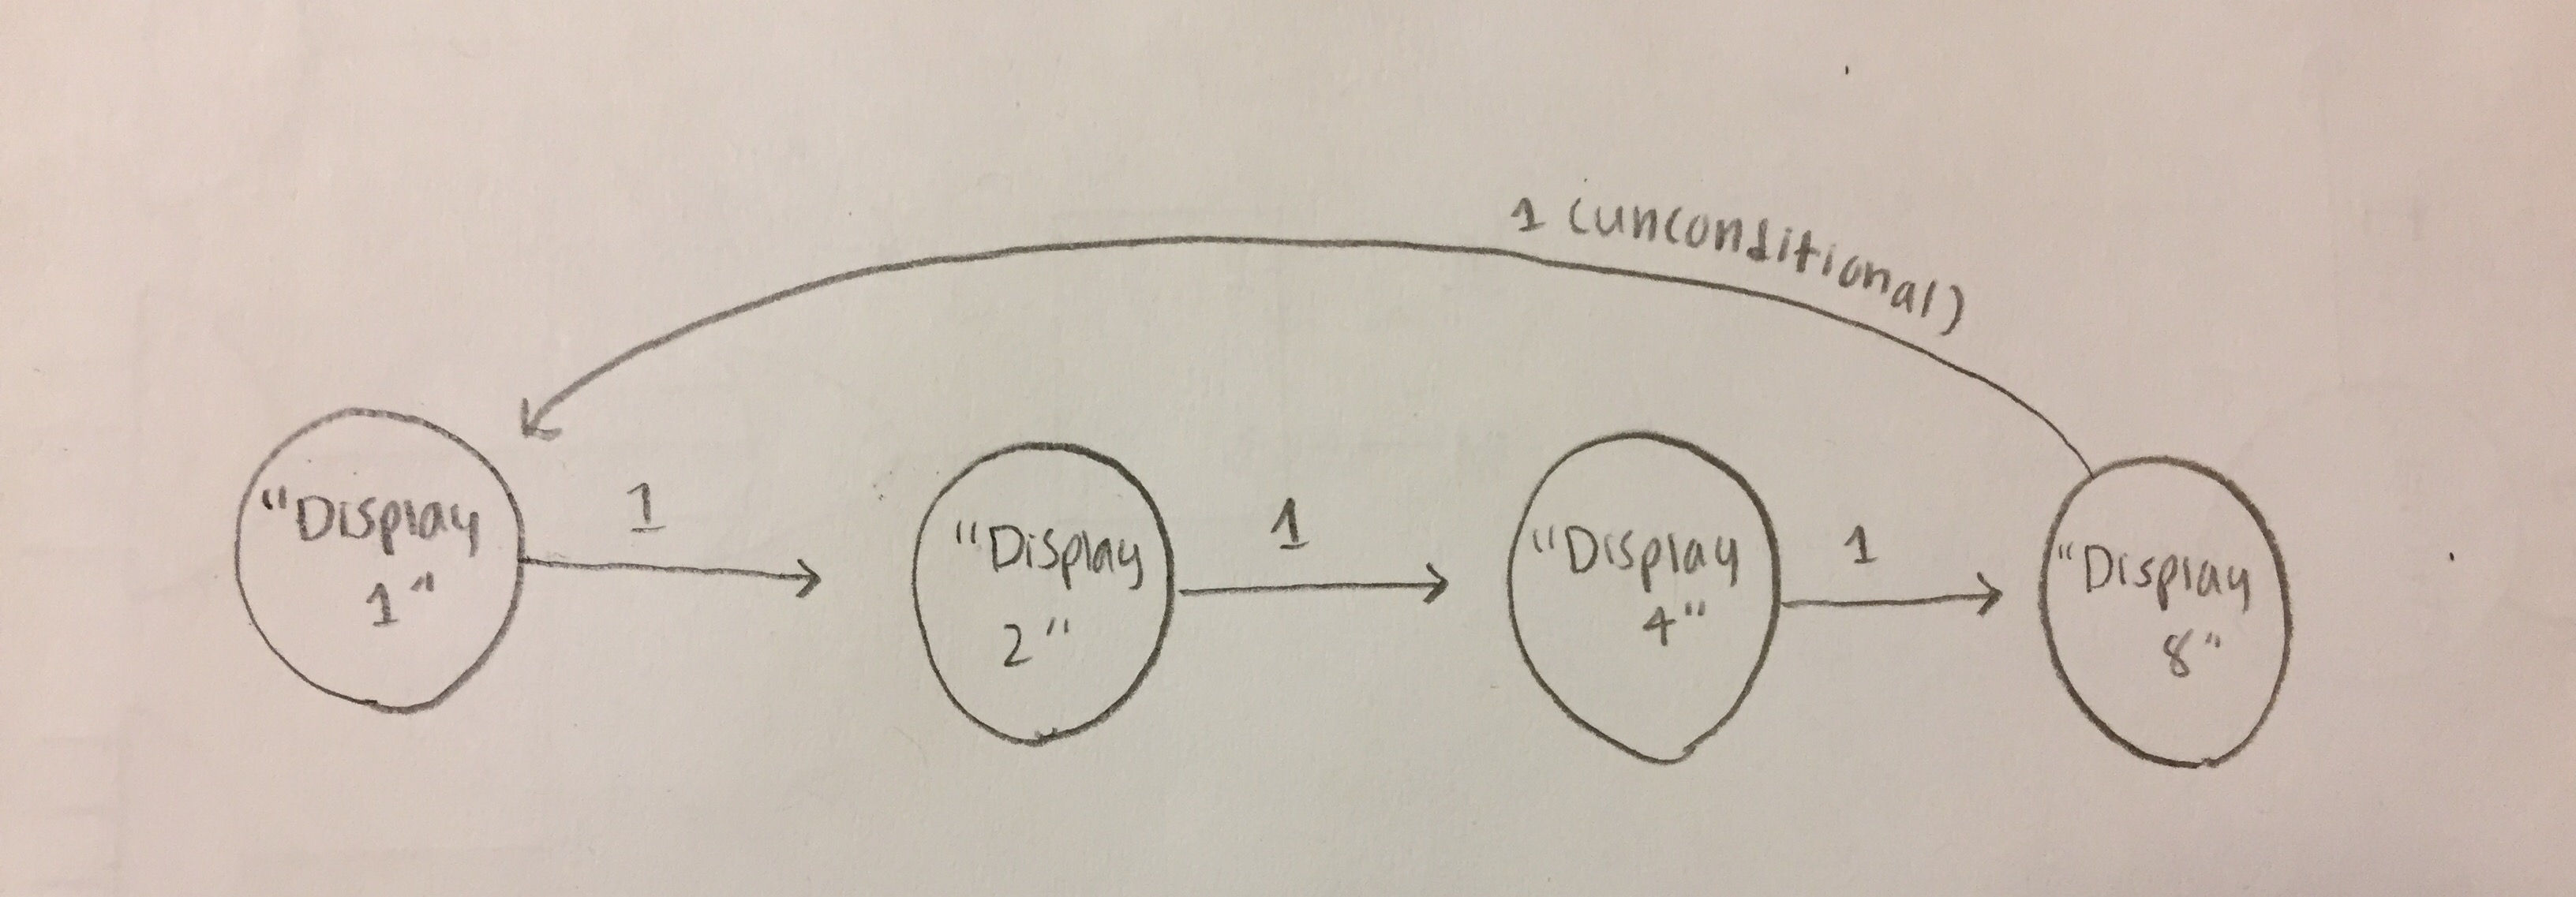 1 (unconditional)
"Display
1"
1
"Display
2"
1
"Display
4"
1
"Display
8"